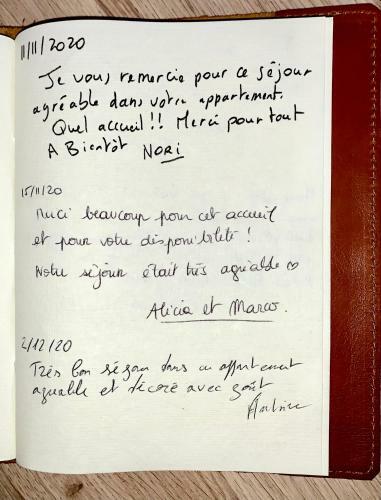 11/11/2020
Je vous remercie pour ce séjour
agréable dans votre appartement.
Quel accueil!! Merci pour tout
A Bientôt NORi
15/11/20
Merci beaucoup pour cet accueil
et pour votre disponibilité !
Notre séjour était très agréable ♡
Alicia et Marco.
2/12/20
Très bon séjour dans un appartement
agréable et décoré avec goût